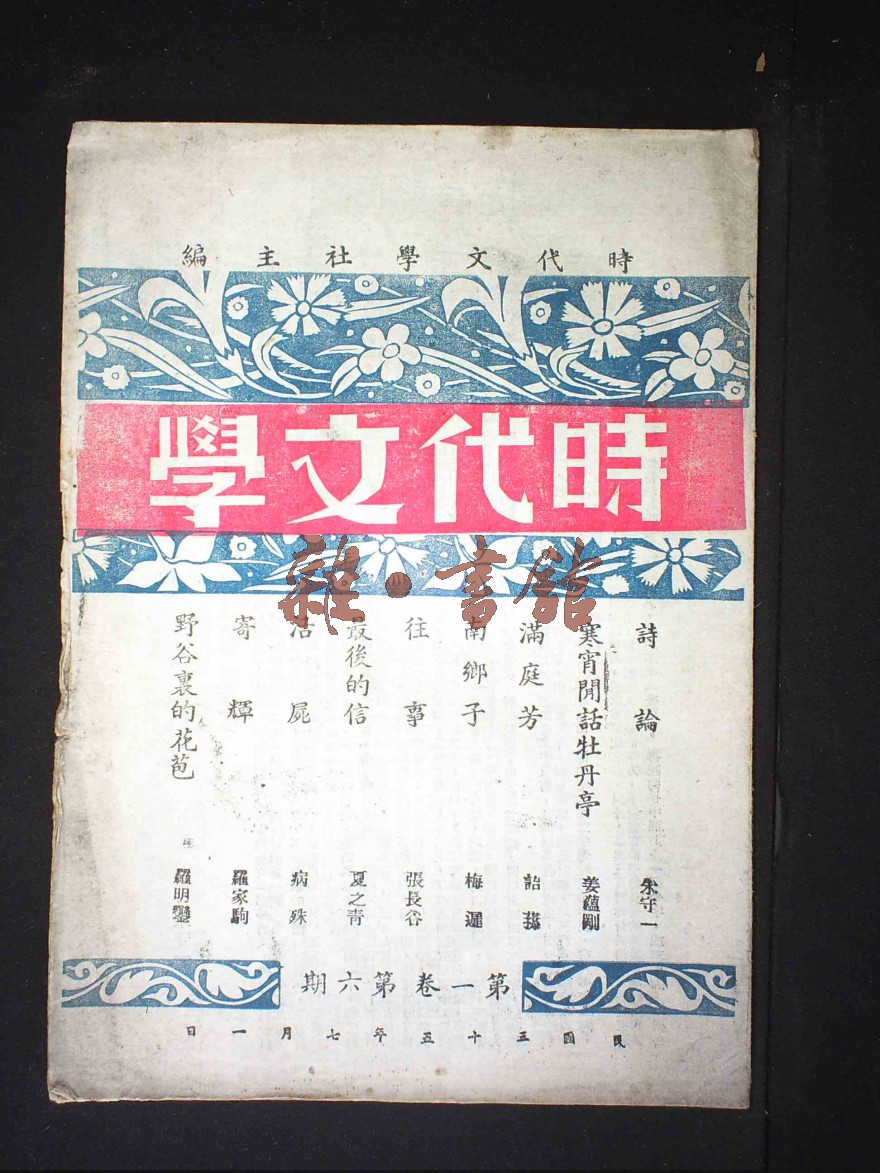 時代文學社主編
時代文學
雜·書館
詩論 朱守一
寒宵閒話牡丹亭 姜蘊剛
滿庭芳
南鄉子 梅遲
往事 張長谷
最後的信 夏之青
活屍 病殊
寄輝 羅家駒
野谷裏的花苞 羅明鑒
第一卷第六期
民國三十五年七月一日